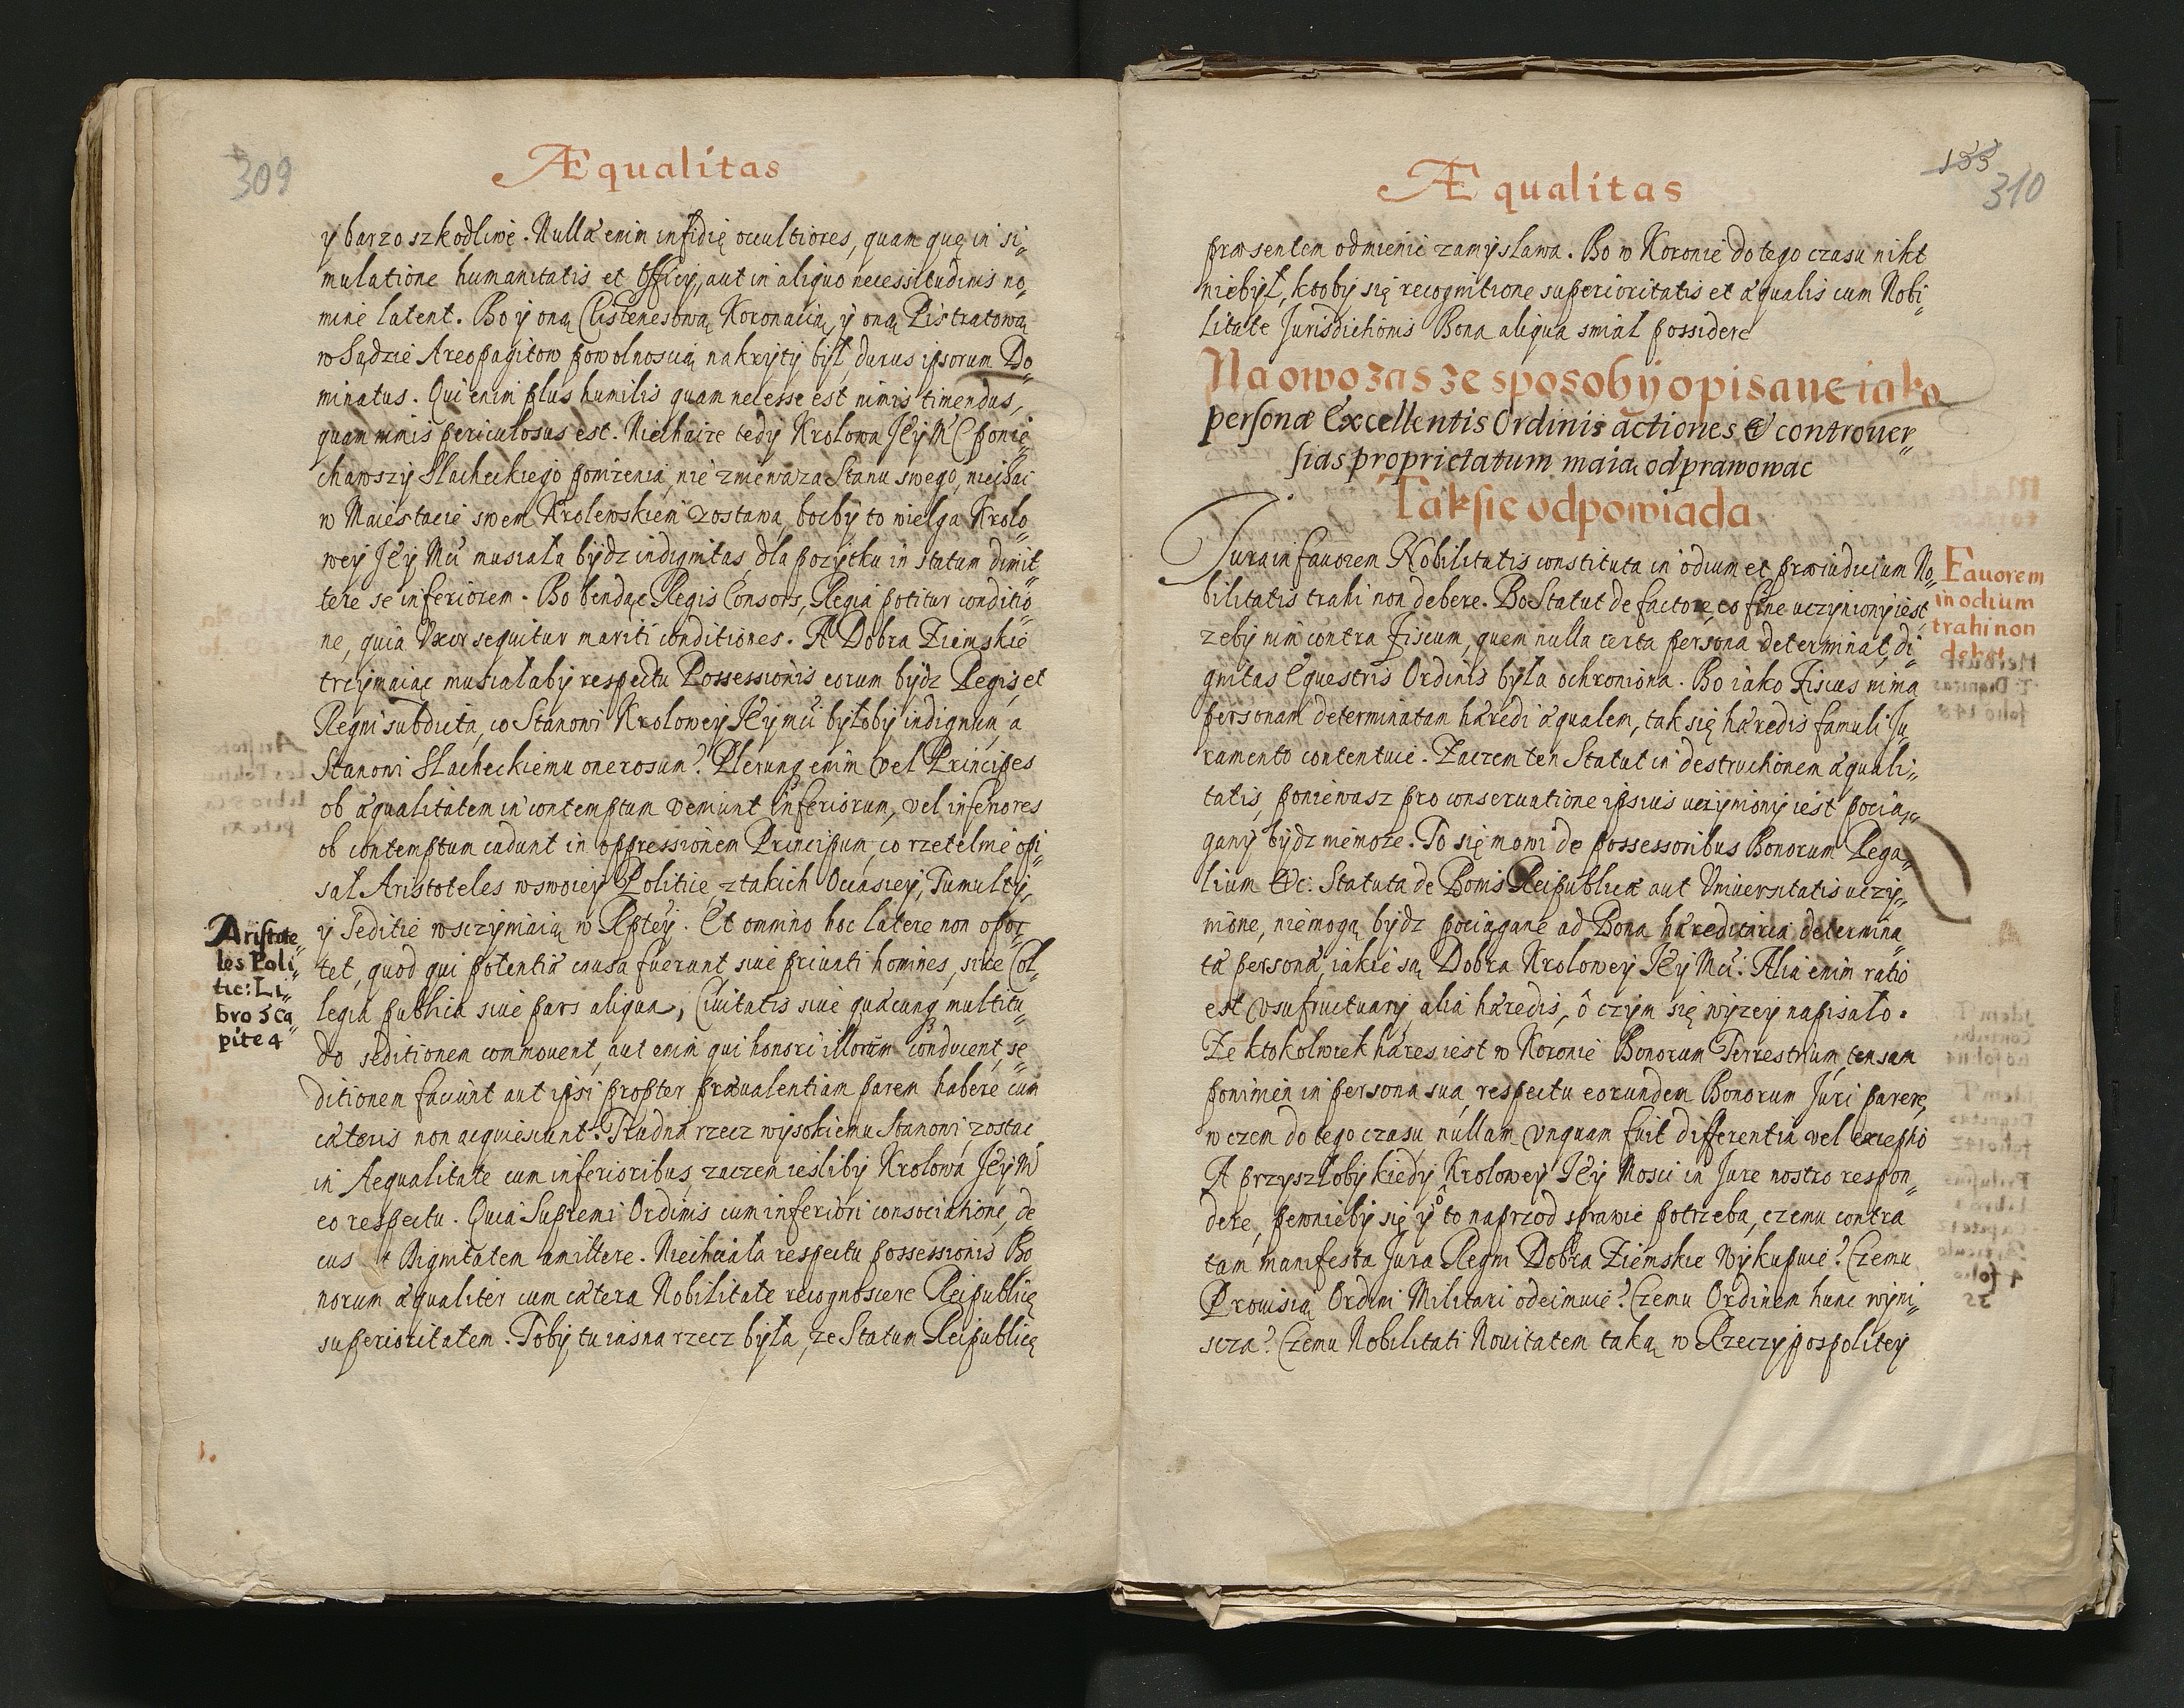 309
Æqualitas
y barzo szkodliwę. Nullæ enim insidię occultiores, quam quę in si„
mulatione humanitatis et Officij, aut in aliquo necessitudinis no„
mine latent. Bo y oną Clistenesową Koronacią, y oną Pistratową
w Sądzie Areopagitow powolnoscią nakryty był durus ipsorum Do„
minatus. Qui enim plus humilis quam necesse est nimis timendus,
quam nimis periculosus est. Niechaize tedy Krolowa JEy Mć ponie„
chawszy Slacheckiego poniżenia, nie zniewaza Stanu swego, niechai
w Maiestacie swem Krolewskiem zostawa, boćby to wielga Krolo„
wey JEy Mći musiała bydz indignitas, dla pozytku in statum dimit„
tere se inferiorem. Bo bendąc Regis Consors, Regia potitur conditio„
ne, quia Uxor sequitur mariti conditiones. A Dobra Ziemskie
trzymaiąc musiałaby respectu Possessionis eorum bydz Regis et
Regni subdita, co Stanowi Krolowey JEy mći byłoby indignum, a
Stanowi Slacheckiemu onerosum? Plerunq enim vel Principes
ob æqualitatem in contemptum veniunt inferiorum, vel inferiores
ob contemptum cadunt in oppressionem Principum, co rzetelnie opi„
sał Aristoteles w swoiey Politice, z takich Occasiey, Tumulty„
y Seditie wsczynaią w Rptey. Et omnino hoc latere non opor„
tet, quod qui potentiæ causa fuerunt siue priuati homines, siue Col„
legia publica siue pars aliqua, Ciuitatis siue quæcunq multitu„
do seditionem commouent, aut enim qui honori illorum conducent, se„
ditionem faciunt aut ipsi propter præualentiam parem habere cum
cæteris non acquiescunt. Trudna rzecz wysokiemu Stanowi zostac
in Aequalitate cum inferioribus, zaczem iesliby Krolowa JEy Mć
eo respectu. Quia Supremi Ordinis cum inferiori consociatione, de
cus et Dignitatem amittere. Niechciała respectu possessionis Bo
norum æqualiter cum cætera Nobilitate recognoscere Reipublicę
superioritatem. Toby tu iasna rzecz była, ze Statum Reipublicę
Aristote„
les Poli„
tic: Li„
bro 5 Ca„
pite 4
155
310
Æqualitas
præsentem odmienic zamysława. Bo w Koronie do tego czasu nikt
niebył, ktoby się recognitione superioritatis et æqualis cum Nobi„
litate Jurisdictionis Bona aliqua smiał possidere
Na owo zas ze sposoby opisane iako
personæ Excellentis Ordinis actiones & controuer„
sias proprietatum maią odprawowac
Tak sie odpowiada
Jura in fauorem Nobilitatis constituta in odium et præiudicium No„
bilitatis trahi non debere. Bo Statut de factore, eo fine uczyniony iest,
zeby nim contra Fiscum, quem nulla certa persona determinat, di„
gnitas Equestris Ordinis była ochroniona. Bo iako Fiscus nima
personam determinatam hæredi æqualem, tak się hæredis famuli Ju„
ramento contentuie. Zaczem ten Statut in destructionem æquali„
tatis, poniewasz pro conseruatione ipsius uczyniony iest pocią„
gany bydz niemoze. To się mowi de possessoribus Bonorum Rega„
lium &c: Statuta de Bonis Reipublicæ aut Uniuersitatis uczy„
nione, niemogą bydz pociągane ad Bona hæreditaria determina„
tæ personæ, iakie są Dobra Krolowey JEy Mći: Alia enim ratio
est Vsufructuarij alia hæredis, ô czym się wyzey napisało.
Ze ktokolwiek hæres iest w Koronie Bonorum Terrestrium, ten sam
powinien in persona sua, respectu eorundem Bonorum Juri parere,
w czem do tego czasu nullam vnquam fuit differentia vel exceptio
A przyszłoby kiedy Krolowey JEy Mosci in Jure nostro respon„
dere, pewnieby się y o to naprzod sprawic potrzeba, czemu contra
tam manifesta Jura Regni Dobra Ziemskie Wykupuie? Czemu
Prouisią Ordini Militari odeimuie? Czemu Ordinem hunc wyni„
scza? Czemu Nobilitati Nouitatem taką w Rzeczypospolitey
Fauorem
in odium
trahi non
debet